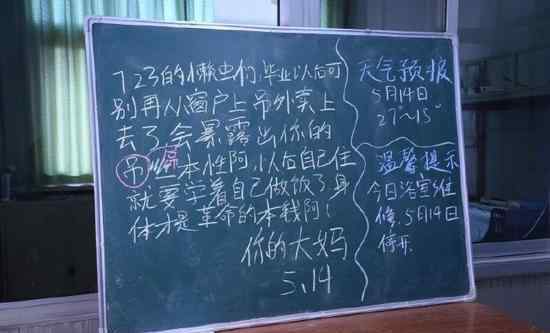 723的小懒虫们,毕业以后可
别再从窗户上吊外卖上
去了会暴露出你的
吊 本性阿,以后自己住
就要学着自己做饭了身
体才是革命的本钱阿!
你的大妈
5.14
天气预报
5月14日
27°~15°
温馨提示
今日浴室维
修,5月14日
停开